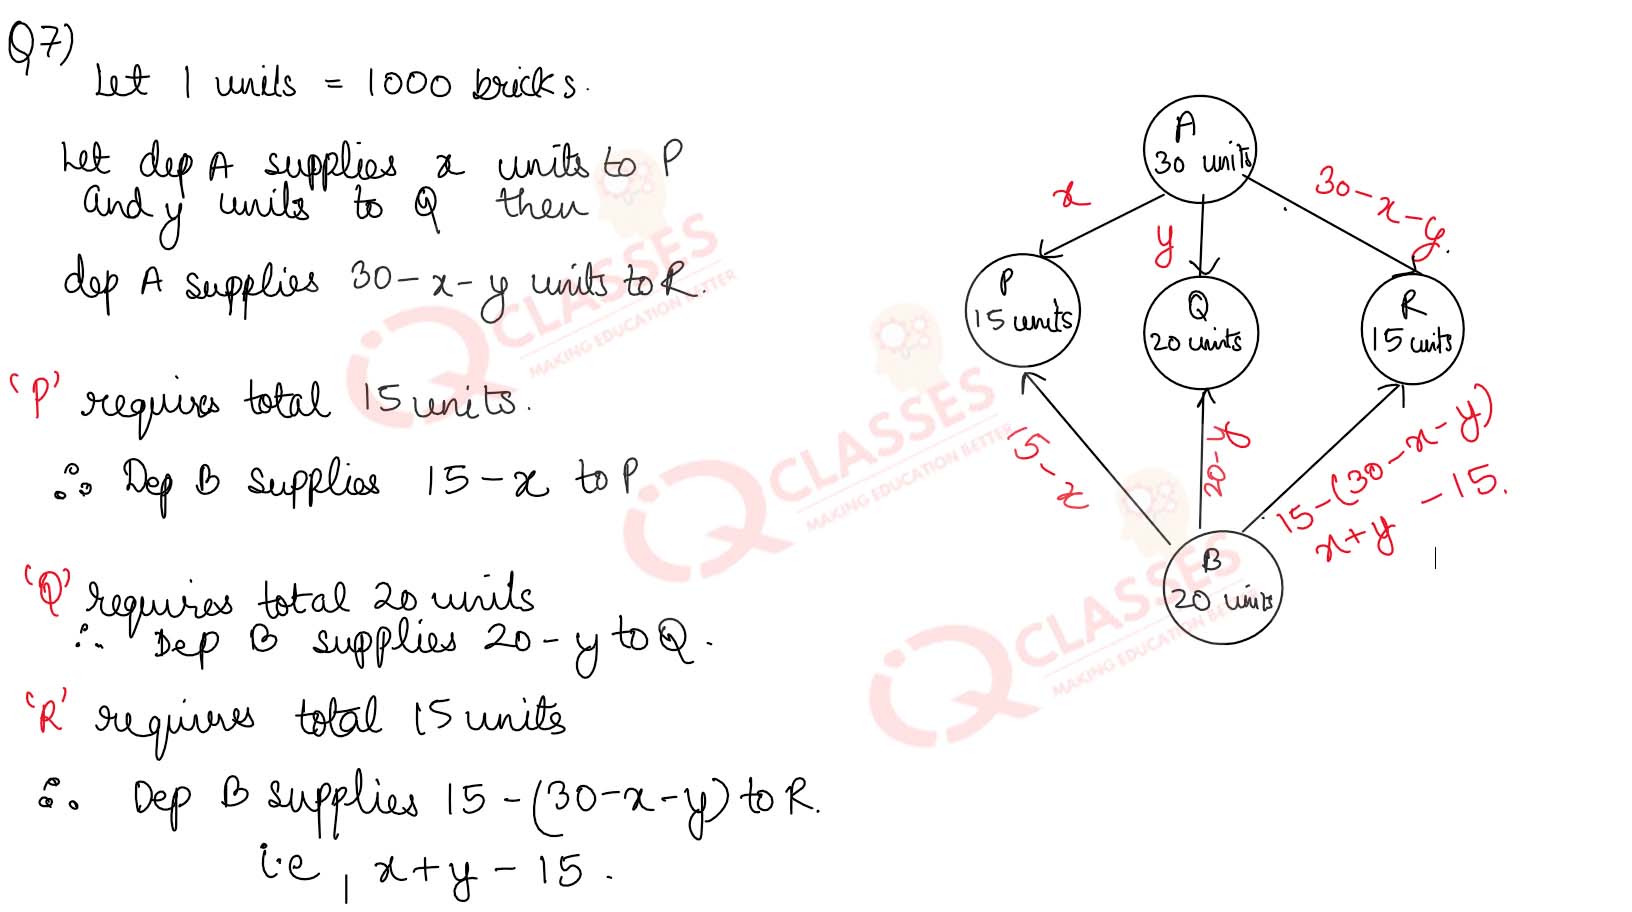 Q7)
Let 1 units = 1000 bricks.
Let dep A supplies x units to P
and y units to Q then
dep A supplies 30-x-y units to R.
'P' requires total 15 units.
∴ Dep B supplies 15-x to P
'Q' requires total 20 units
∴ Dep B supplies 20-y to Q.
'R' requires total 15 units
∴ Dep B supplies 15-(30-x-y) to R.
i.e, x+y-15.
A
30 units
x
y
30-x-y.
P
15 units
Q
20 units
R
15 units
15-x
20-y
15-(30-x-y)
x+y-15.
B
20 units
IQ CLASSES
MAKING EDUCATION BETTER
IQ CLASSES
MAKING EDUCATION BETTER
IQ CLASSES
MAKING EDUCATION BETTER